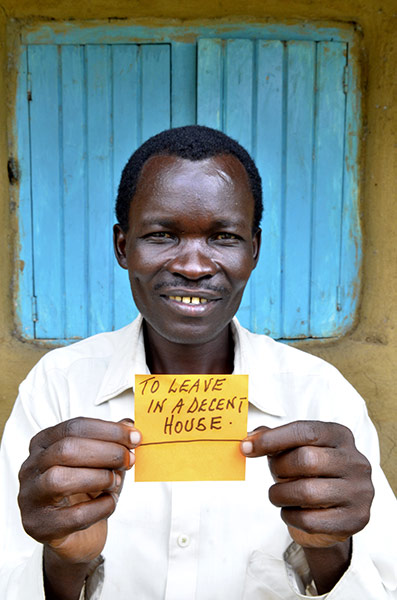 TO LEAVE
IN A DECENT
HOUSE.